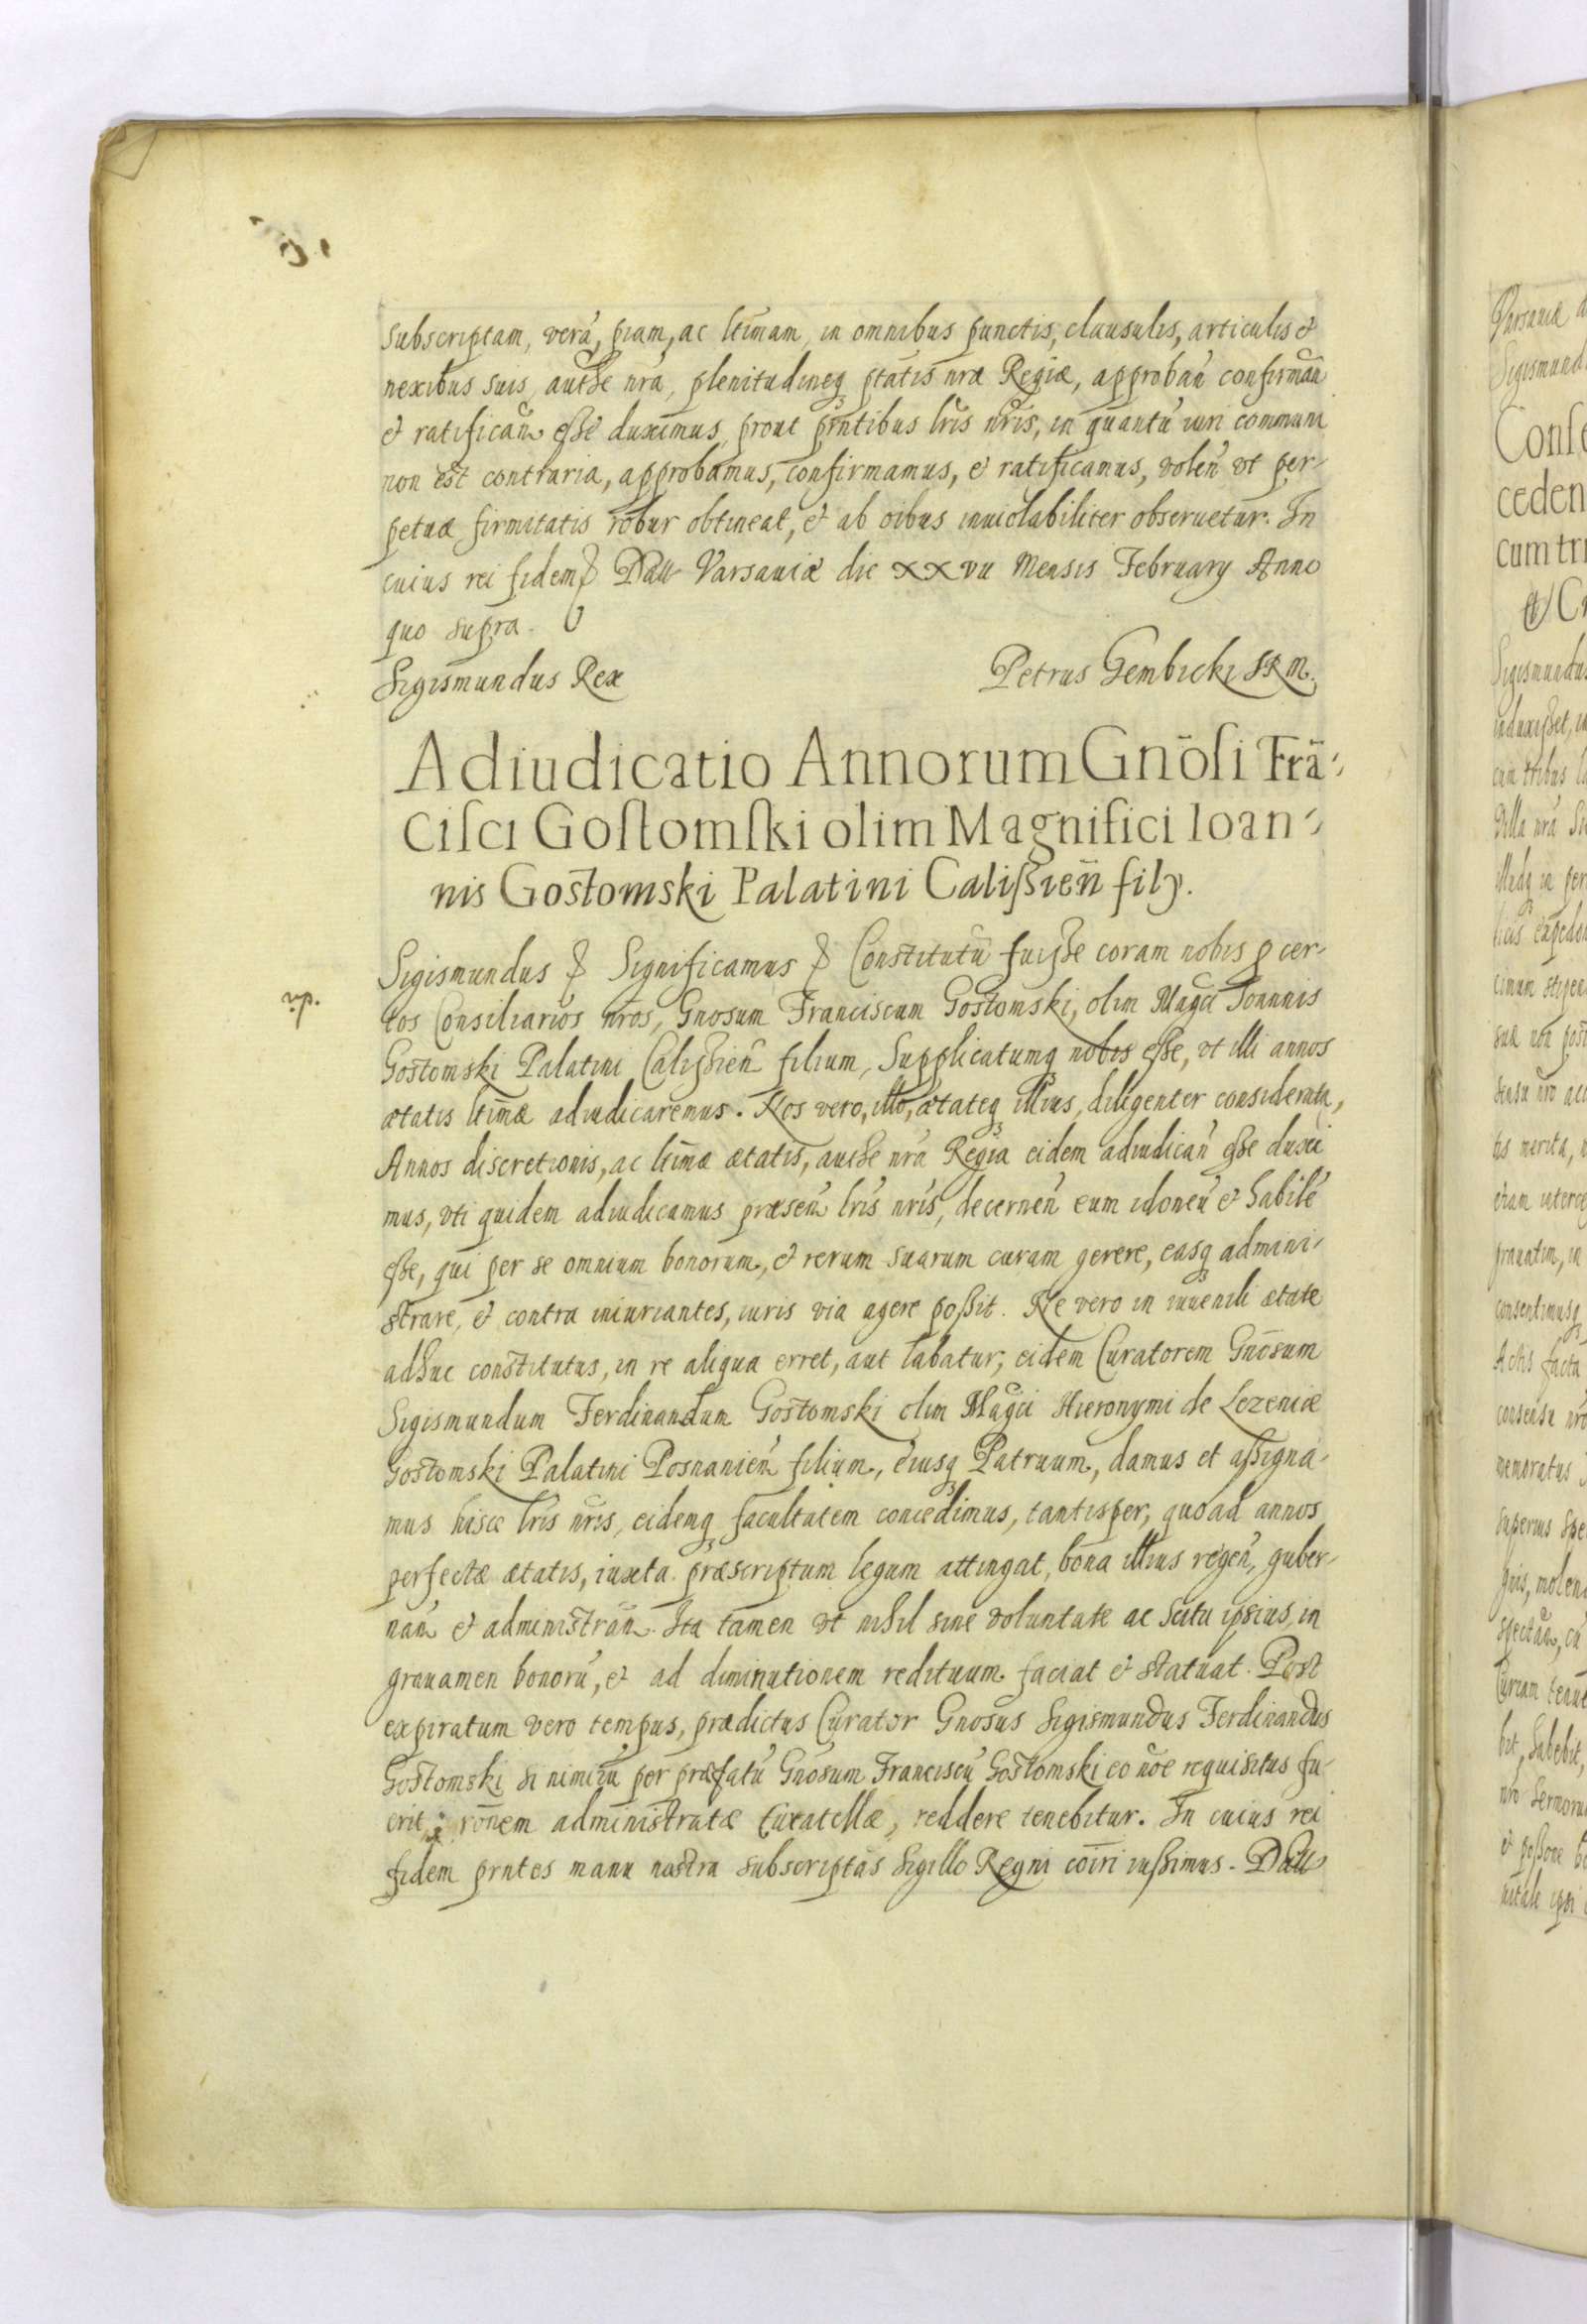 subscriptam, verã, piam, ac ltimam, in omnibus punctis, clausulis, articulis et
nexibus suis, authe nrã, plenitudineq ptãtis nræ Regiæ, approbañ confirmañ
et ratificañ esse duximus, prout pñtibus lris nris, in quantũ iuri communi
non est contraria, approbamus, confirmamus, et ratificamus, voleñ vt per-
petuæ firmitatis robur obtineat, et ab oibus inuiolabiliter obseruetur. In
cuius rei fidem Datt Varsauiæ die XXVII Mensis February Anno
quo supra.
Sigismundus Rex Petrus Gembicki SRM.
Adiudicatio Annorum Gnõsi Frã-
cisci Gostomski olim Magnifici Ioan-
nis Gostomski Palatini Calissieñ filÿ.
Sigismundus Significamus Constitutũ fuisse coram nobis p cer-
tos Consiliarios nros, Gnosum Franciscum Gostomski, olim Magci Ioannis
Gostomski Palatini Calissieñ filium, Supplicatumq nobis esse, vt illi annos
ætatis ltimæ adiudicaremus. Nos vero, illo, ætateq illius, diligenter considerata,
Annos discretionis, ac ltimæ ætatis, authe nrã Regia eidem adiudicañ esse duxi
mus, vti quidem adiudicamus præseñ lris nris, decerneñ eum idoneũ et habilẽ
esse, qui per se omnium bonorum, et rerum suarum curam gerere, easq admini-
strare, et contra iniuriantes, iuris via agere possit. Ne vero in iuuenili ætate
adhuc constitutus, in re aliqua erret, aut labatur, eidem Curatorem Gnõsum
Sigismundum Ferdinandum Gostomski olim Magci Hieronymi de Lezenice
Gostomski Palatini Posnanieñ filium, eiusq Patruum, damus et assigna-
mus hisce lris nris, eidemq facultatem concedimus, tantisper, quoad annos
perfectæ ætatis, iuxta præscriptum legum attingat, bona illius regeñ, guber-
nañ et administrañ. Ita tamen vt nihil sine voluntate ac scitu ipsius, in
grauamen bonorũ, et ad diminutionem redituum faciat et statuat. Post
expiratum vero tempus, prædictus Curator Gnosus Sigismundus Ferdinandus
Gostomski si nimirũ per præfatũ Gnosum Franciscũ Gostomski eo nõe requisitus fu-
erit, rõnem administratæ Curatellæ, reddere tenebitur. In cuius rei
fidem prntes manu nostra subscriptas Sigillo Regni cõiri iussimus. Datt